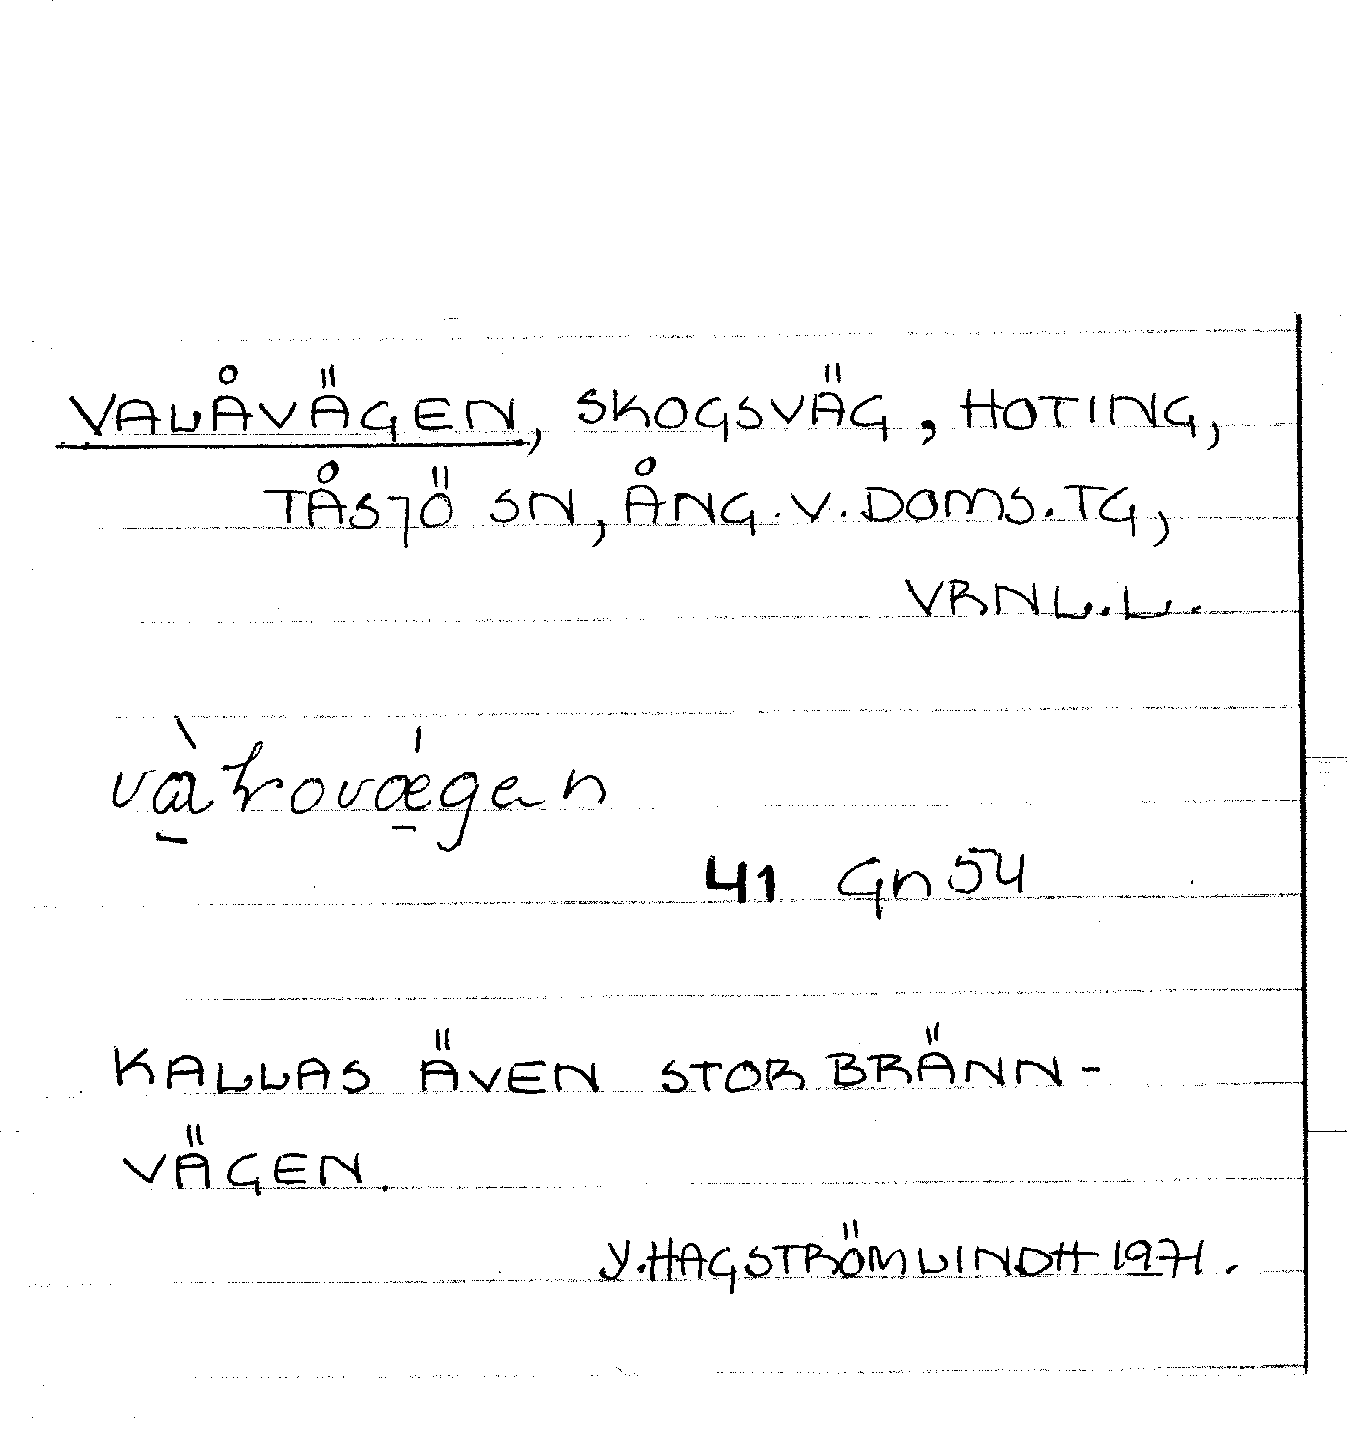 VALÅVÄGEN, SKOGSVÄG, HOTING,
TÅSJÖ SN, ÅNG. V. DOMS. TG,
VRNL.L.
41 Gn 54
KALLAS ÄVEN STOR BRÄNN-
VÄGEN.
Y. HAGSTRÖM LINDH 1971.